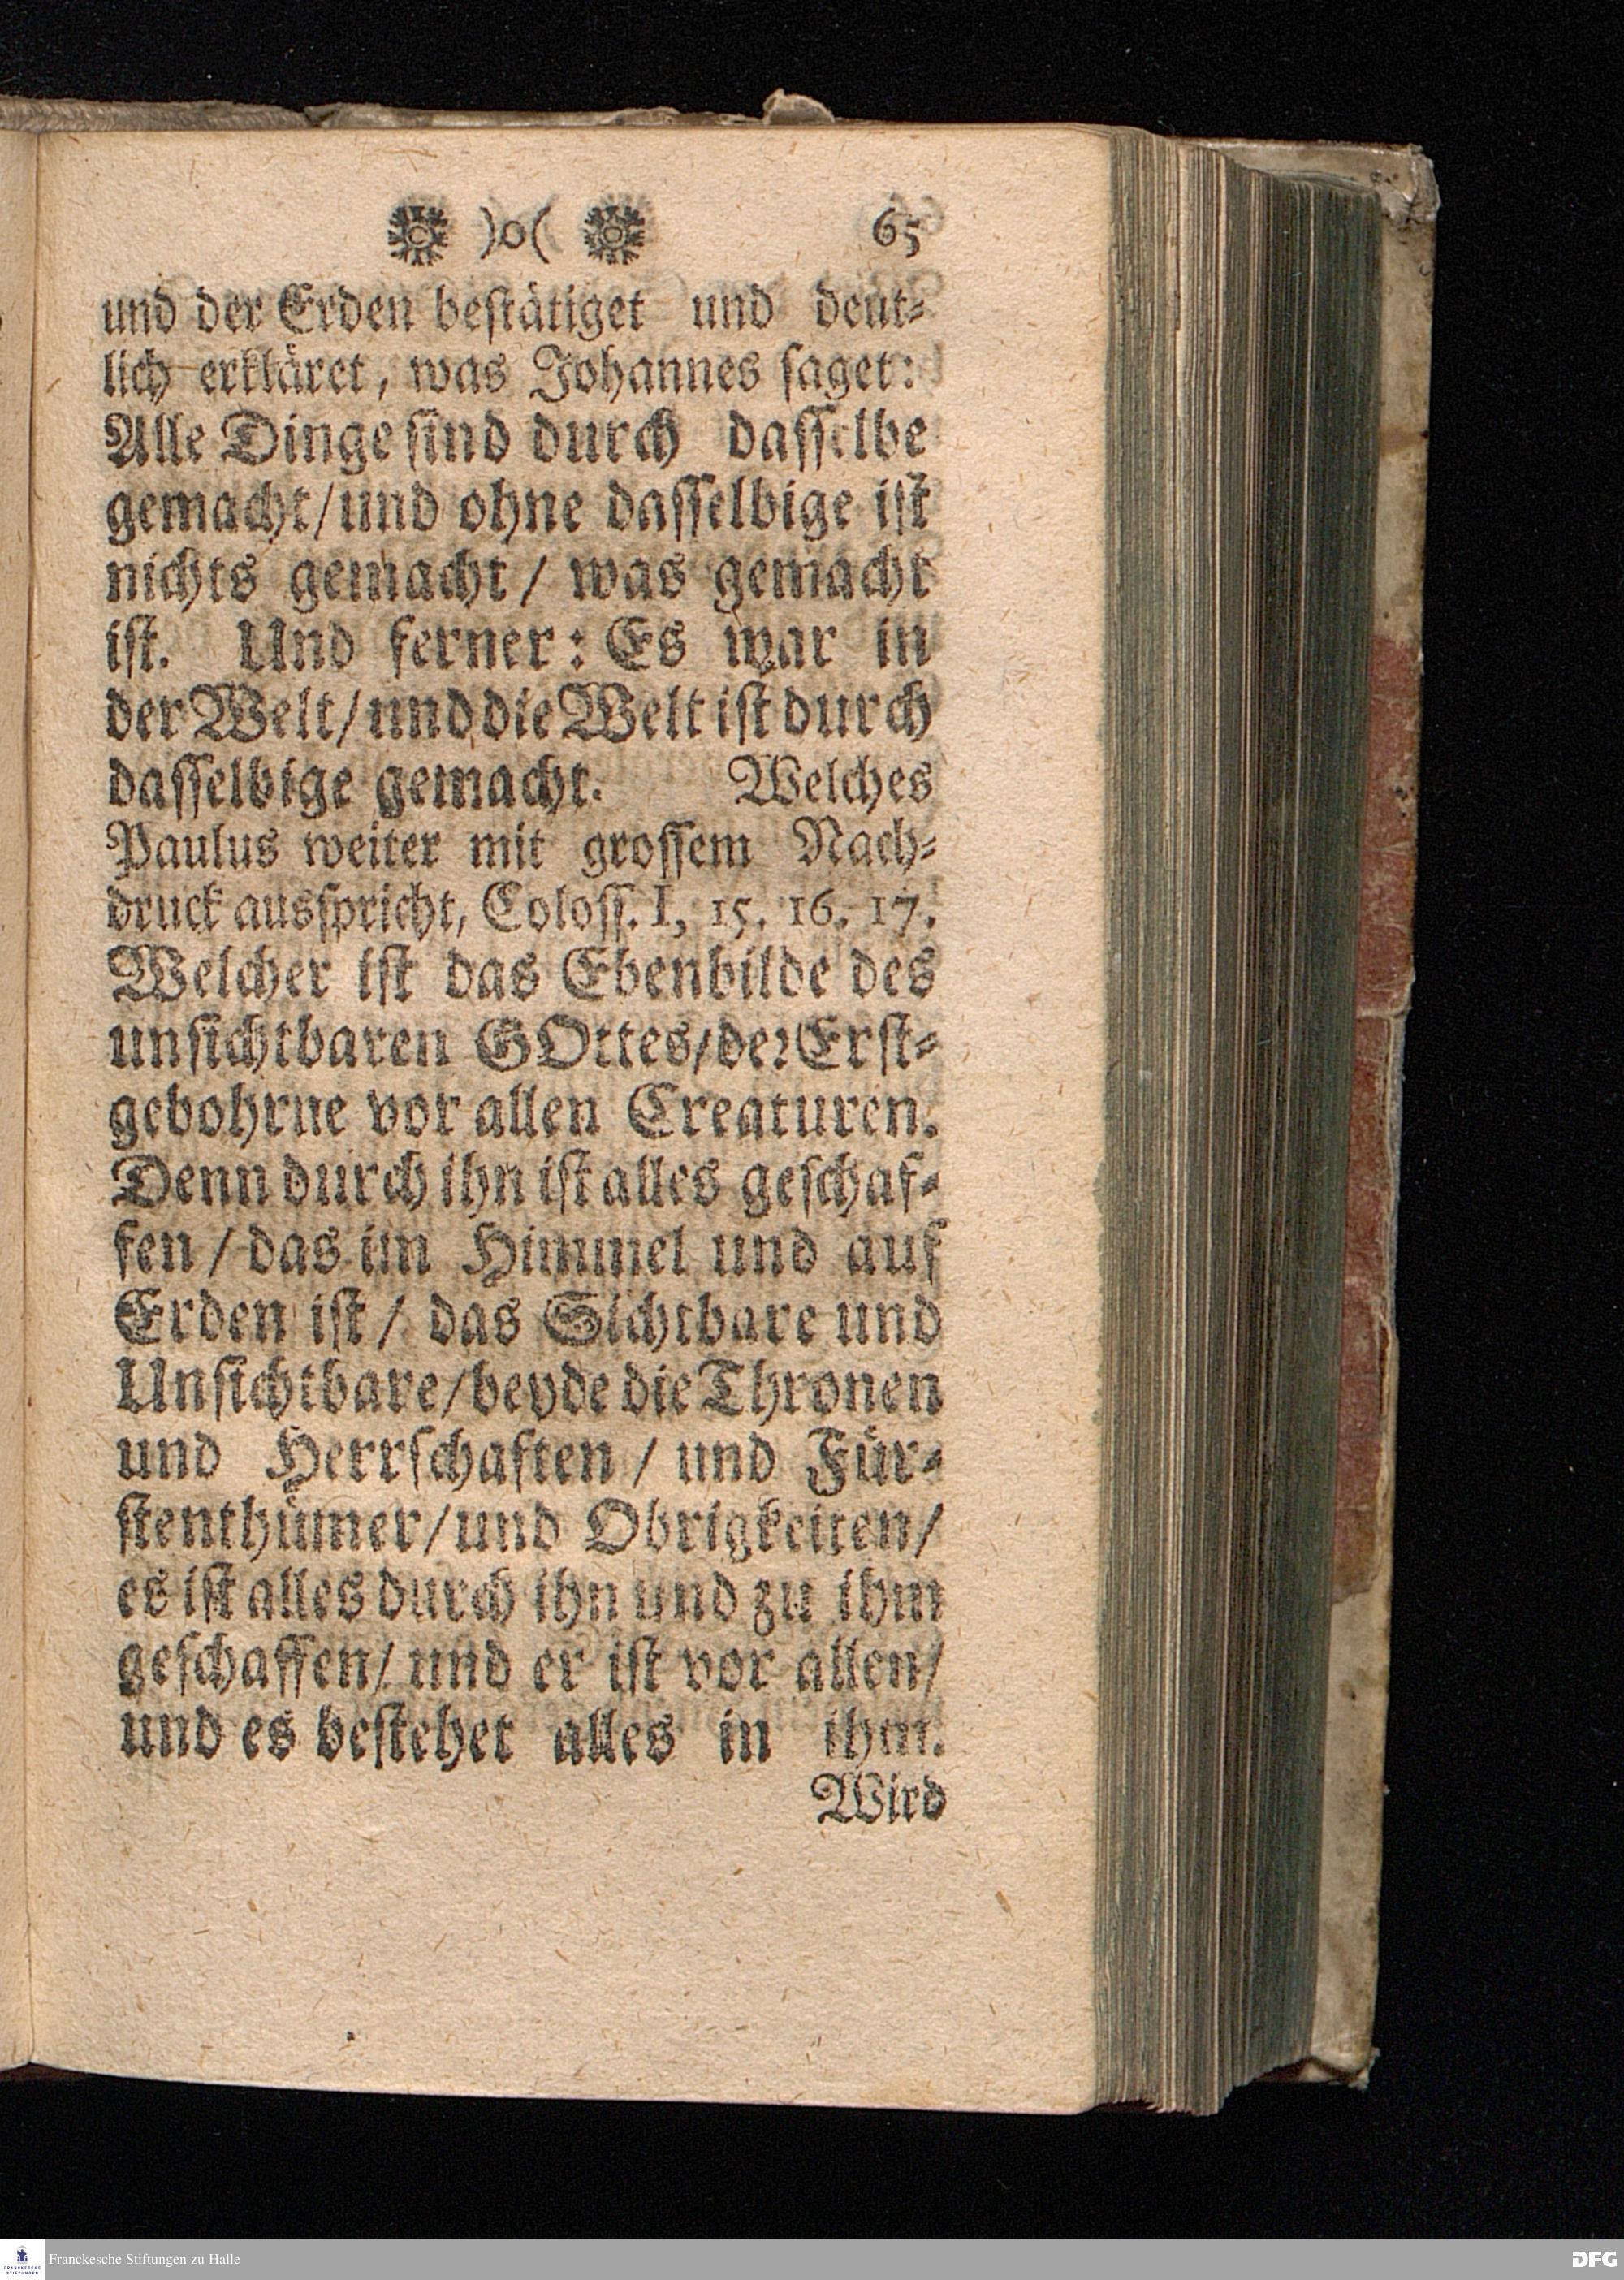 )o( 65
und der Erden bestätiget und deut-
lich erkläret, was Johannes saget:
Alle Dinge sind durch dasselbe
gemacht/und ohne dasselbige ist
nichts gemacht/ was gemacht
ist. Und ferner: Es war in
der Welt/und die Welt ist durch
dasselbige gemacht. Welches
Paulus weiter mit grossem Nach-
druck ausspricht, Coloss. I, 15. 16. 17.
Welcher ist das Ebenbilde des
unsichtbaren GOttes/der Erst-
gebohrne vor allen Creaturen.
Denn durch ihn ist alles geschaf-
fen/das im Himmel und auf
Erden ist/ das Sichtbare und
Unsichtbare/beyde die Thronen
und Herrschaften/ und Für-
stenthümer/und Obrigkeiten/
es ist alles durch ihn und zu ihm
geschaffen/ und er ist vor allen/
und es bestehet alles in ihm.
Wird
FRANCKESCHE STIFTUNGEN
Franckesche Stiftungen zu Halle
DFG